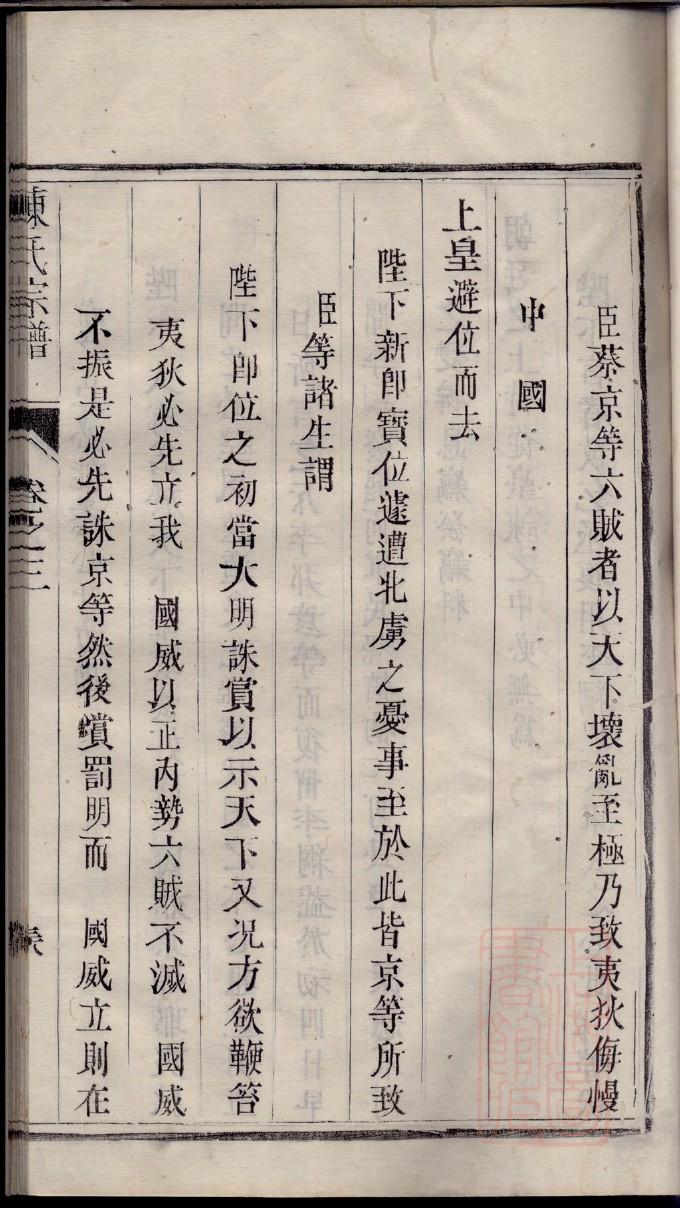 臣蔡京等六賊者以天下壞亂至極乃致夷狄侮慢
中國
上皇避位而去
陛下新卽寶位遽遭北虜之憂事至於此皆京等所致
臣等諸生謂
陛下卽位之初當大明誅賞以示天下又况方欲鞭笞
夷狄必先立我 國威以正內勢六賊不滅 國威
不振是必先誅京等然後賞罰明而 國威立則在
陳氏宗譜 卷之三